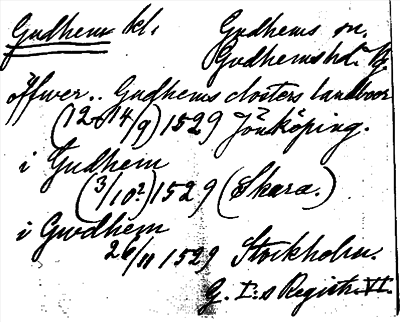 Gudhems kl. Gudhems sn.
Gudhems hd. Vg.
öffwer.. Gudhems closters landboer
(12-14/9) 1529 Jönköping.
i Gudhem
(3/10?) 1529 (Skara.)
i Gwdhem
26/11 1529 Stockholm.
G. I:s Registr. VI.